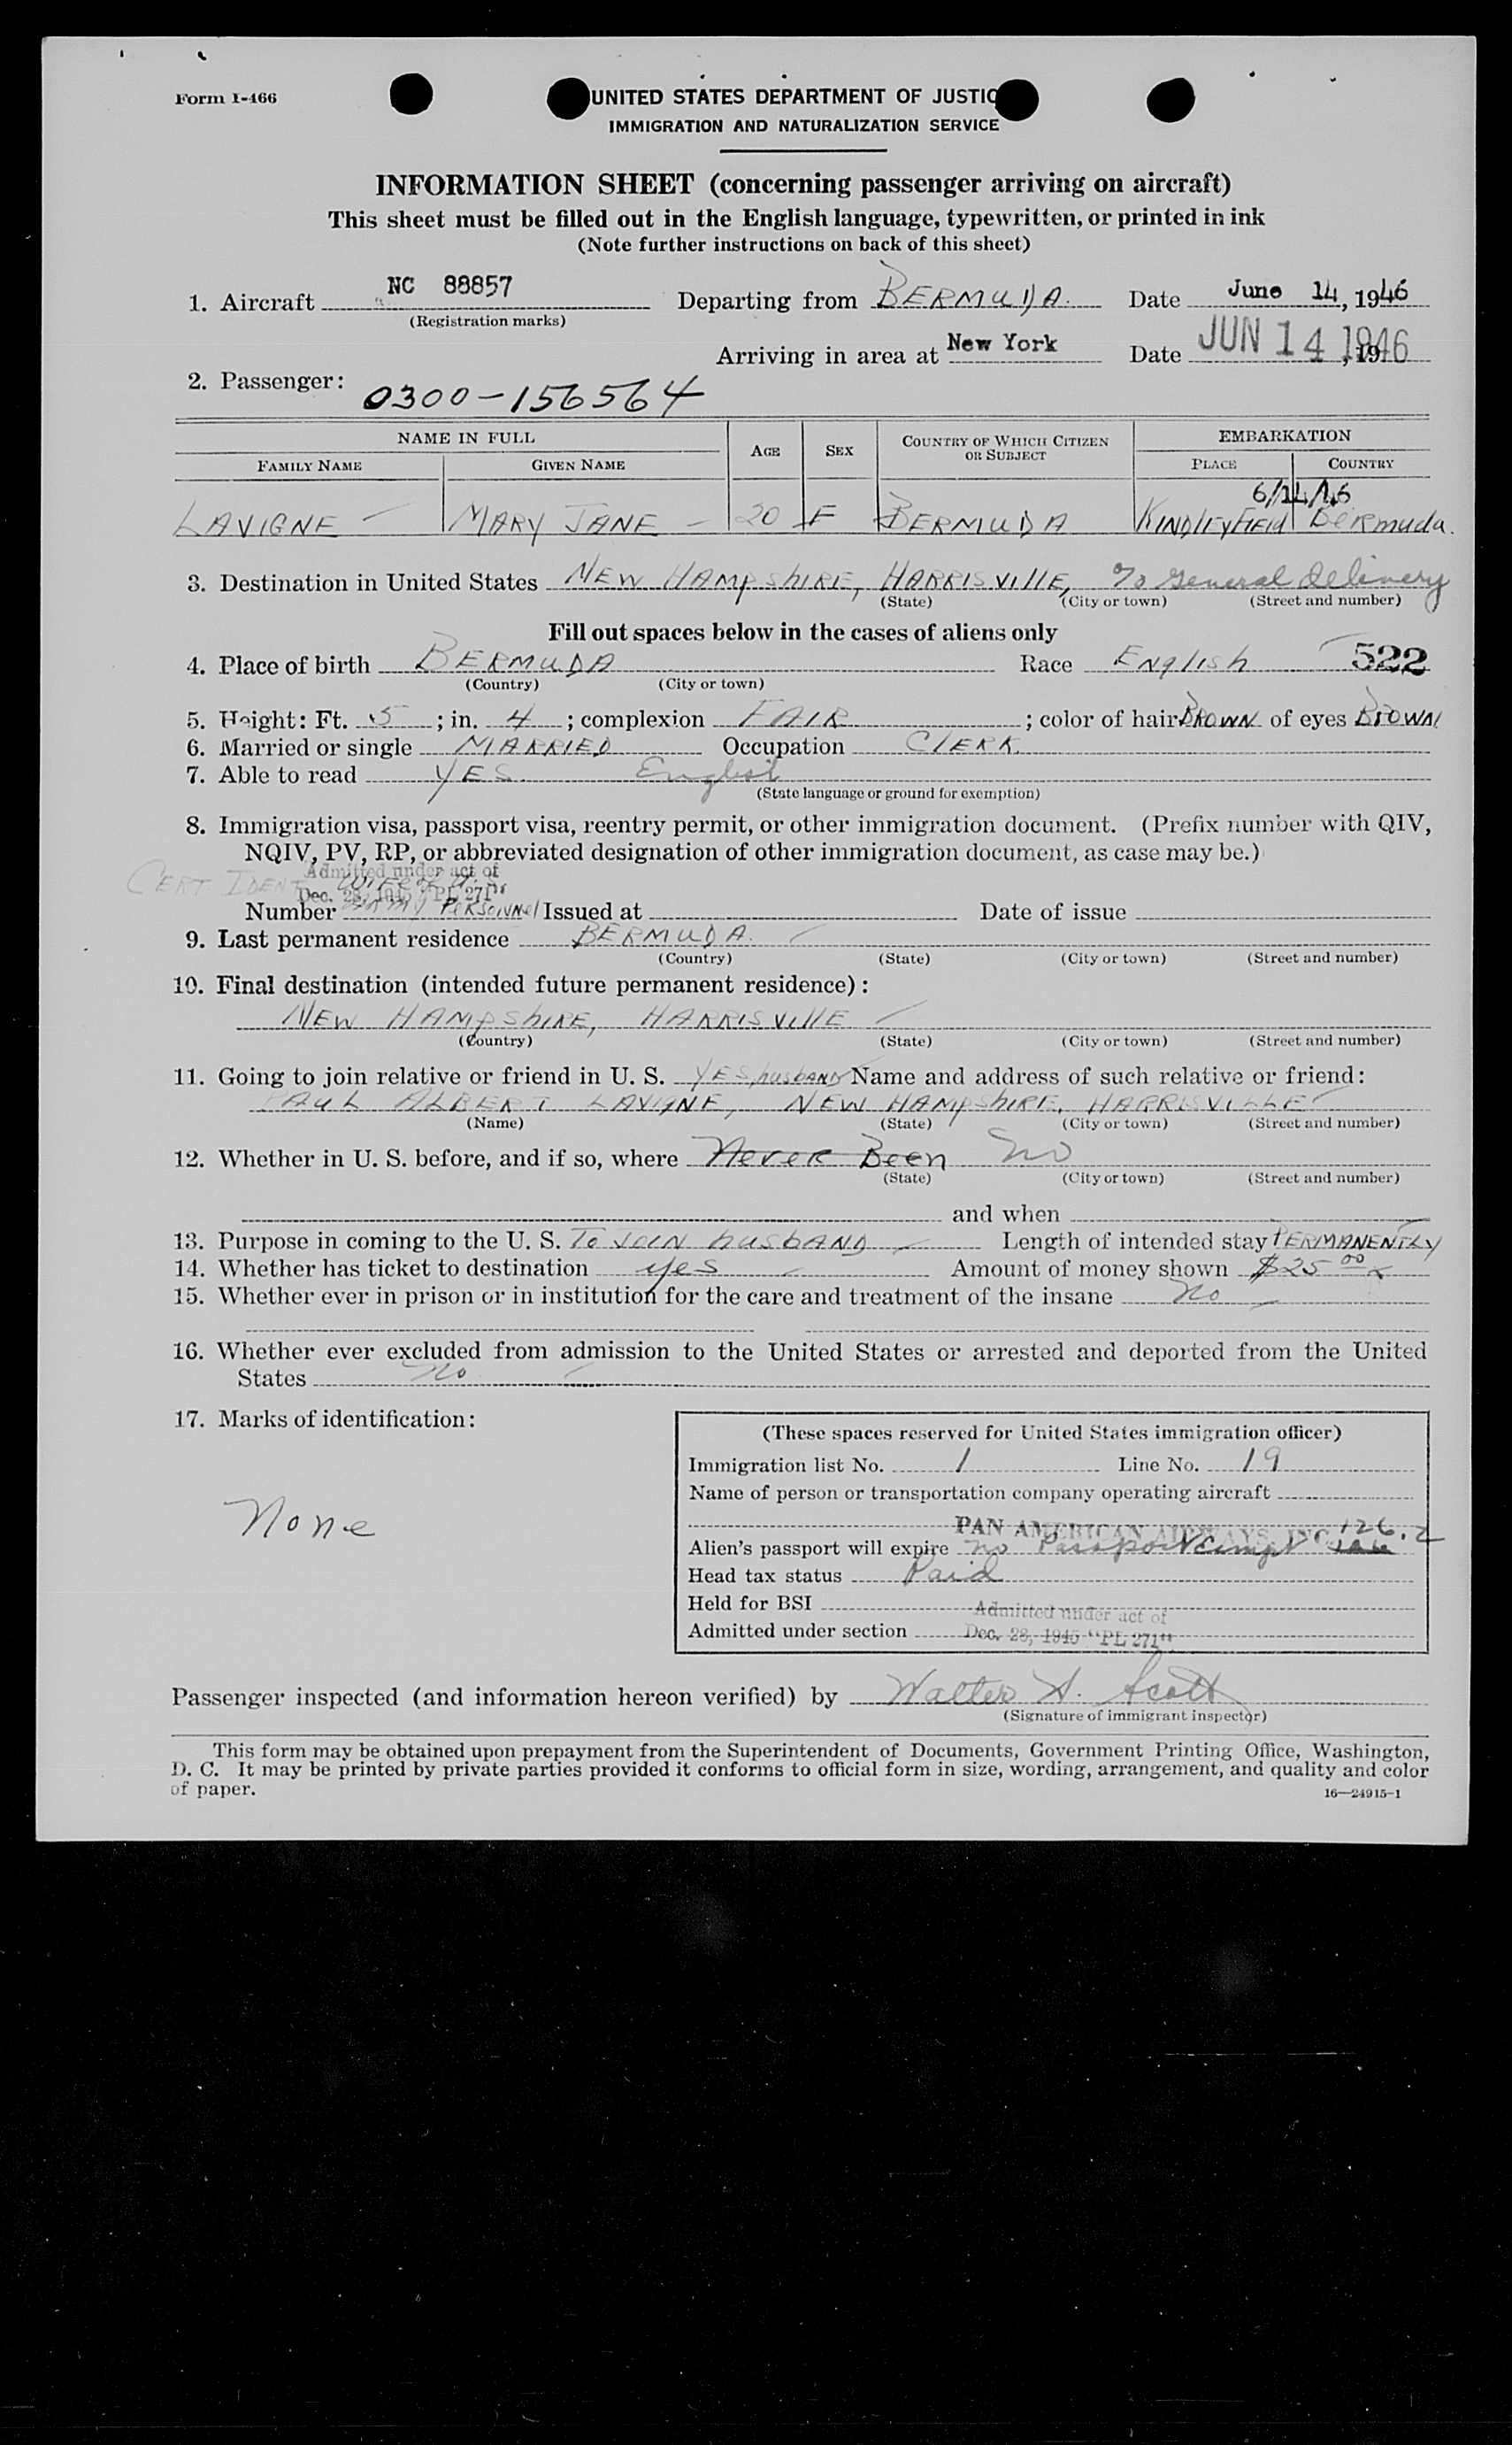 Form I-466
UNITED STATES DEPARTMENT OF JUSTIC
IMMIGRATION AND NATURALIZATION SERVICE
INFORMATION SHEET (concerning passenger arriving on aircraft)
This sheet must be filled out in the English language, typewritten, or printed in ink
(Note further instructions on back of this sheet)
1. Aircraft NC 88857 Departing from BERMUDA. Date June 14, 1946
(Registration marks)
Arriving in area at New York Date JUN 14 1946, 19
2. Passenger: 0300-156564
NAME IN FULL AGE SEX COUNTRY OF WHICH CITIZEN OR SUBJECT EMBARKATION
FAMILY NAME GIVEN NAME PLACE COUNTRY
6/14/46
LAVIGNE MARY JANE 20 F BERMUDA KINDLEY FIELD BERMUDA.
3. Destination in United States NEW HAMPSHIRE, HARRISVILLE, % General delivery
(State) (City or town) (Street and number)
Fill out spaces below in the cases of aliens only
4. Place of birth BERMUDA Race English 522
(Country) (City or town)
5. Height: Ft. 5; in. 4; complexion FAIR; color of hair BROWN of eyes BROWN
6. Married or single MARRIED Occupation CLERK.
7. Able to read YES. English
(State language or ground for exemption)
8. Immigration visa, passport visa, reentry permit, or other immigration document. (Prefix number with QIV,
NQIV, PV, RP, or abbreviated designation of other immigration document, as case may be.)
Admitted under act of
CERT IDENT wife of U.S.
Dec. 28, 1945 "PL 271"
Number ARMY PERSONNEL Issued at Date of issue
9. Last permanent residence BERMUDA.
(Country) (State) (City or town) (Street and number)
10. Final destination (intended future permanent residence):
NEW HAMPSHIRE, HARRISVILLE
(Country) (State) (City or town) (Street and number)
11. Going to join relative or friend in U. S. YES, husband Name and address of such relative or friend:
PAUL ALBERT LAVIGNE, NEW HAMPSHIRE, HARRISVILLE
(Name) (State) (City or town) (Street and number)
12. Whether in U. S. before, and if so, where Never Been No
(State) (City or town) (Street and number)
and when
13. Purpose in coming to the U. S. To JOIN husbAND Length of intended stay PERMANENTLY
14. Whether has ticket to destination yes Amount of money shown $25 00
15. Whether ever in prison or in institution for the care and treatment of the insane No
16. Whether ever excluded from admission to the United States or arrested and deported from the United
States No
17. Marks of identification:
None
(These spaces reserved for United States immigration officer)
Immigration list No. 1 Line No. 19
Name of person or transportation company operating aircraft
PAN AMERICAN AIRWAYS, INC. 126.2
Alien's passport will expire no Passport
Head tax status Paid
Held for BSI
Admitted under act of
Admitted under section Dec. 28, 1945 "PL 271"
Passenger inspected (and information hereon verified) by Walter H. Scott
(Signature of immigrant inspector)
This form may be obtained upon prepayment from the Superintendent of Documents, Government Printing Office, Washington,
D. C. It may be printed by private parties provided it conforms to official form in size, wording, arrangement, and quality and color
of paper.
16—24915-1